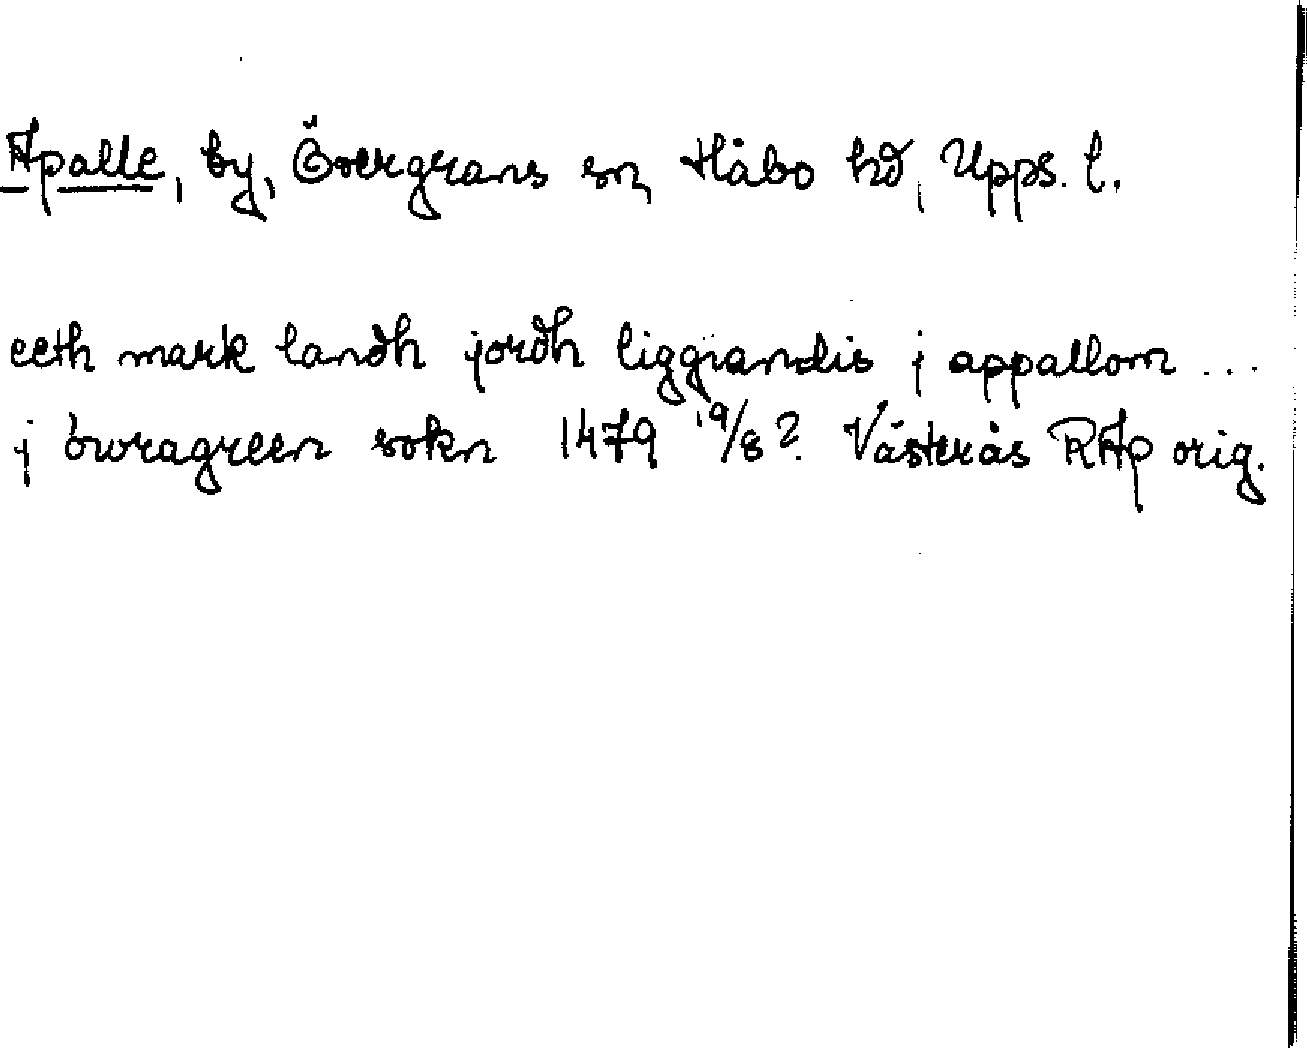 Apalle, by, Övergrans sn, Håbo hd, Upps. l.
eeth mark landh jordh liggiandis j appallom ...
j öwragreen sokn 1479 19/8? Västerås RAp orig.